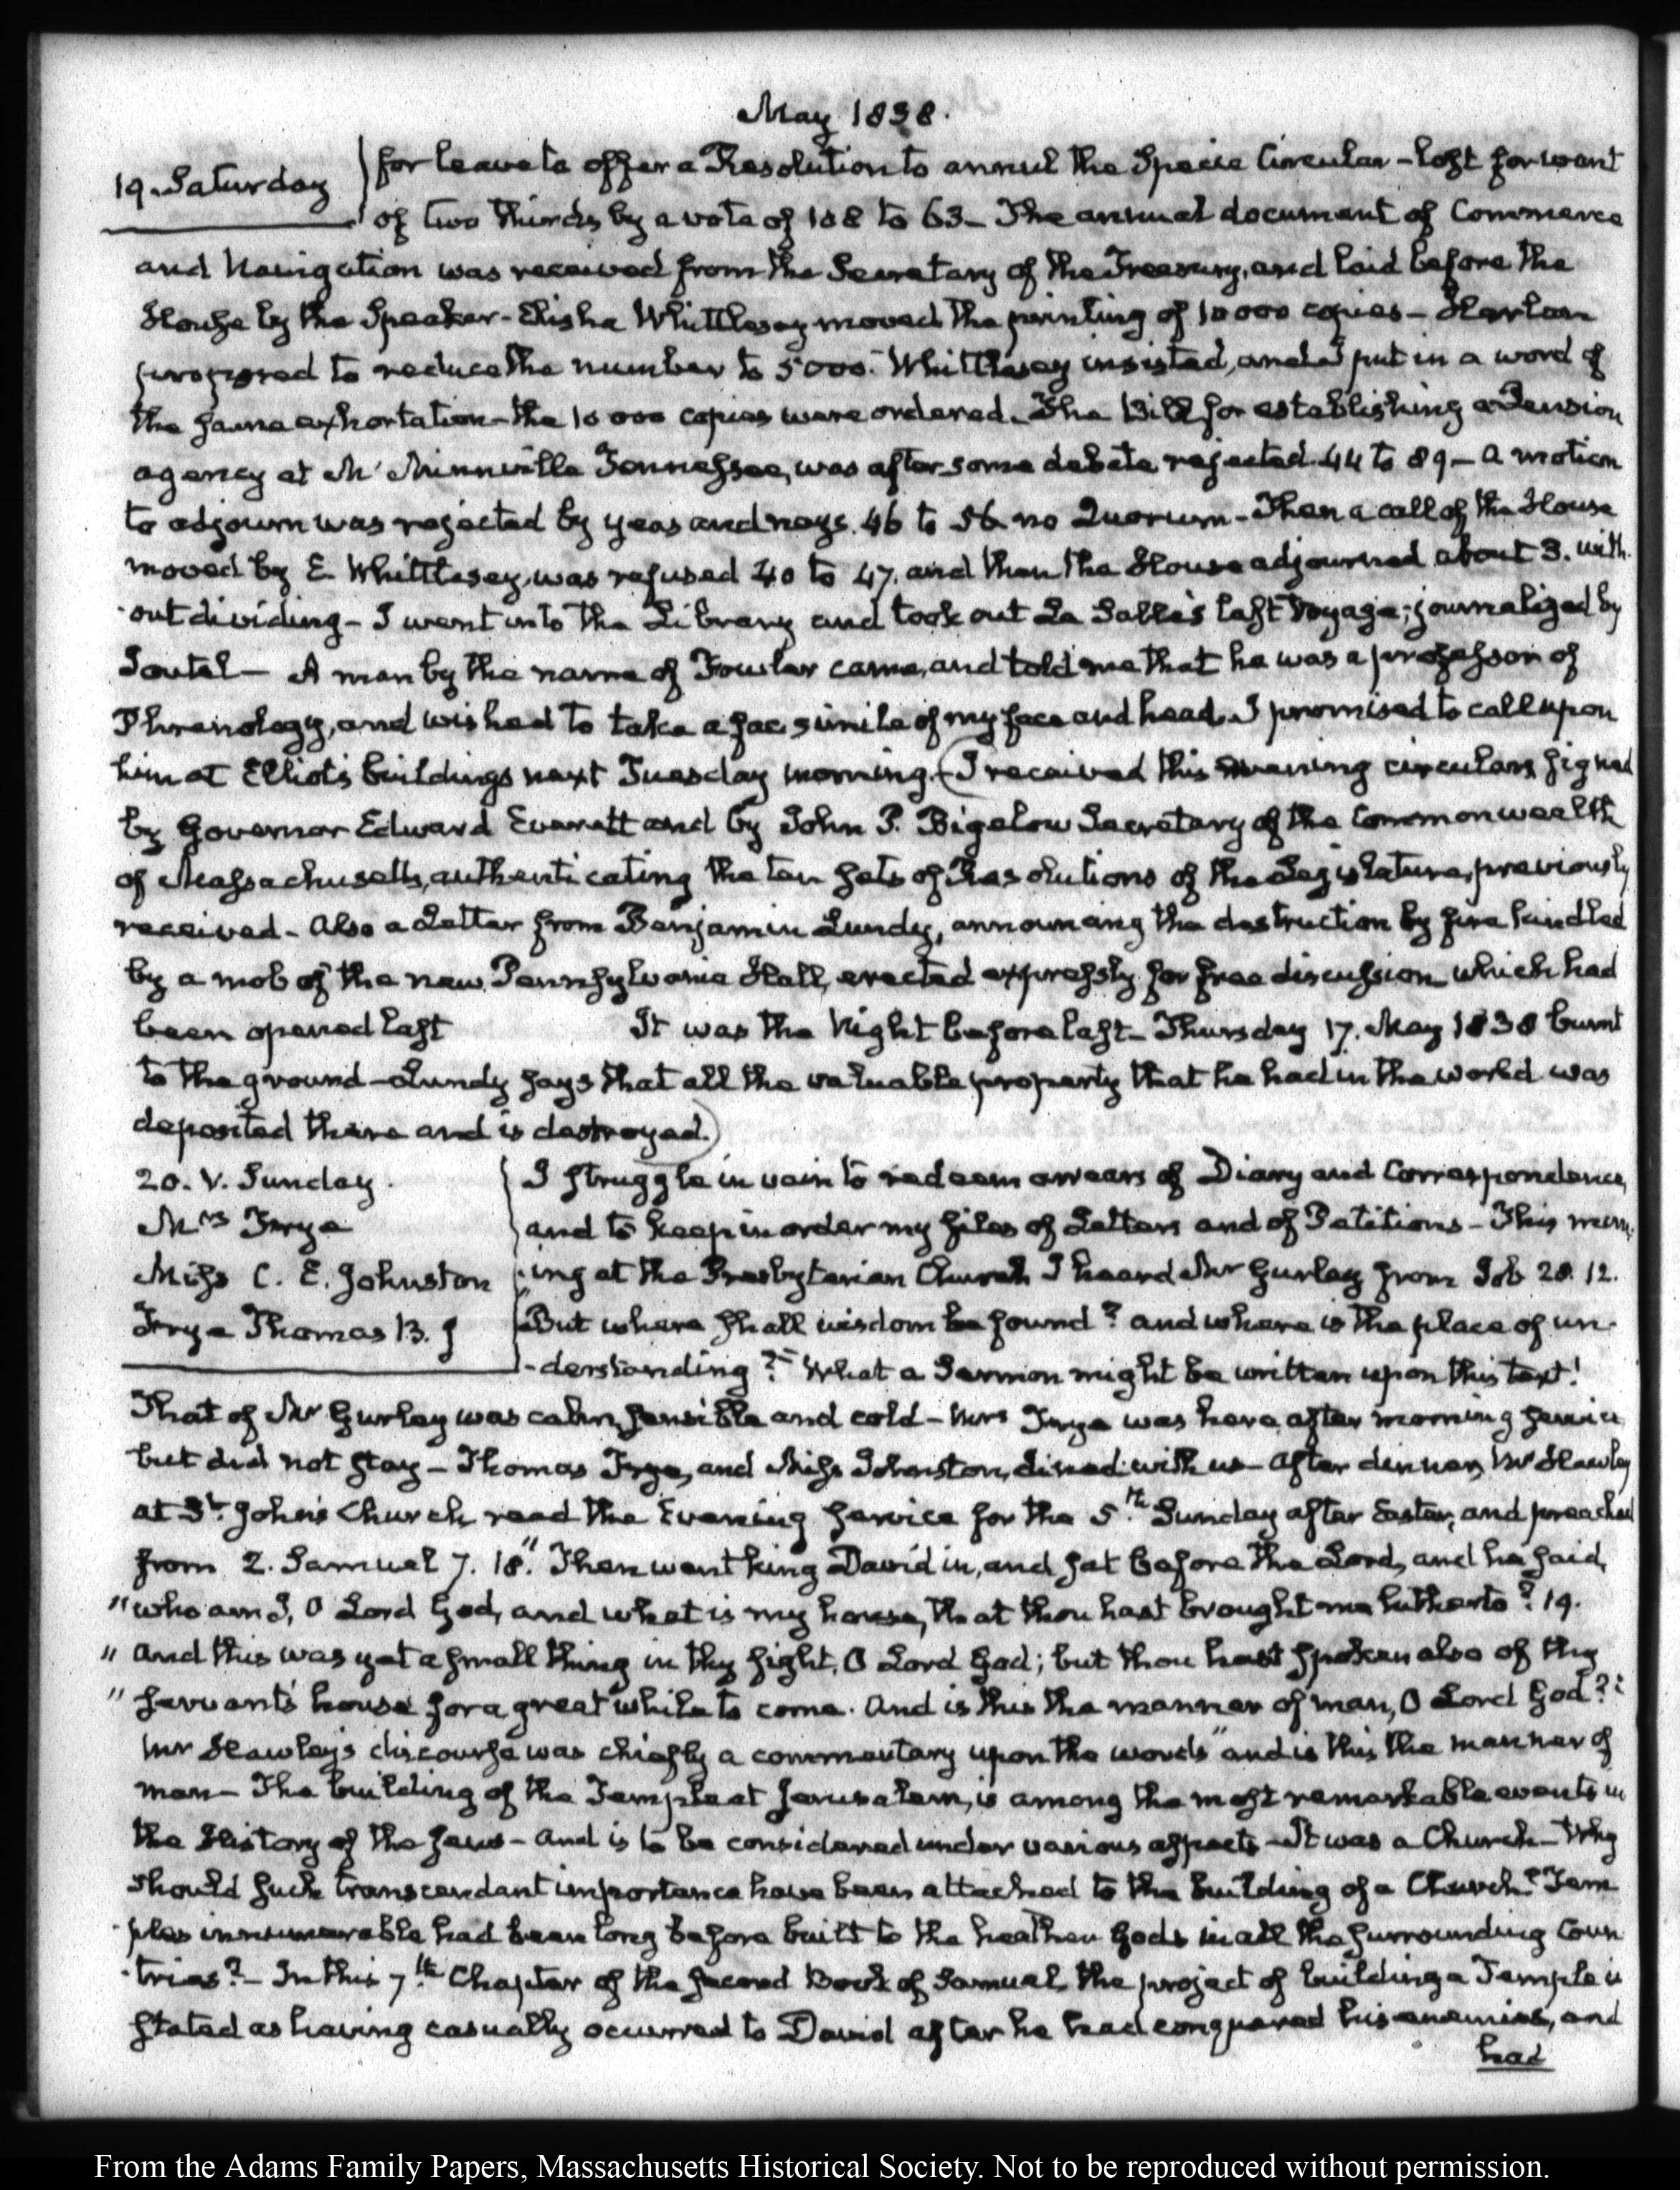 May 1838.
19. Saturday
for leave to offer a Resolution to annul the Specie Circular – lost for want
of two thirds by a vote of 108 to 63 – The annual document of Commerce
and Navigation was received from the Secretary of the Treasury, and laid before the
House by the Speaker – Elisha Whittlesey moved the printing of 10 000 copies – Harlan
proposed to reduce the number to 5000. Whittlesey insisted, and I put in a word of
the same exhortation – the 10 000 copies were ordered. The Bill for establishing a Pension
agency at Mc Minnville Tennessee, was after some debate rejected 44 to 89 – A motion
to adjourn was rejected by yeas and nays. 46 to 56 no Quorum – Then a call of the House
moved by E. Whittlesey, was refused 40 to 47. and then the House adjourned about 3. with-
out dividing – I went into the Library and took out La Salle's last Voyage, journalized by
Joutel – A man by the name of Fowler came, and told me that he was a professor of
Phrenology, and wished to take a fac simile of my face and head. I promised to call upon
him at Elliot's buildings next Tuesday morning – (I received this evening circulars signed
by Governor Edward Everett and by John P. Bigelow Secretary of the Commonwealth
of Massachusetts, authenticating the ten sets of Resolutions of the Legislature, previously
received – Also a Letter from Benjamin Lundy, announcing the destruction by fire kindled
by a mob of the new Pennsylvania Hall, erected expressly for free discussion which had
been opened last It was the Night before last – Thursday 17. May 1838 burnt
to the ground – Lundy says that all the valuable property that he had in the world was
deposited there and is destroyed.)
20. V. Sunday.
Mrs Frye
Miss C. E. Johnston
Frye Thomas B. J
I struggle in vain to redeem arrears of Diary and Correspondence,
and to keep in order my files of Letters and of Petitions – This morn-
ing at the Presbyterian Church I heard Mr Gurley from Job 28. 12.
"But where shall wisdom be found? and where is the place of un-
-derstanding?" – What a Sermon might be written upon this text!
That of Mr Gurley was calm, sensible and cold – Mrs Frye was here after morning service
but did not stay – Thomas Frye, and Miss Johnston, dined with us – After dinner, Mr Hawley
at St. John's Church, read the Evening service for the 5th. Sunday after Easter, and preached
from 2. Samuel 7. 18. "Then went king David in, and sat before the Lord, and he said,
"who am I, O Lord God, and what is my house, that thou hast brought me hitherto? 19.
"And this was yet a small thing in thy sight, O Lord God; but thou hast spoken also of thy
"servant's house for a great while to come. And is this the manner of man, O Lord God?"
Mr Hawley's discourse was chiefly a commentary upon the words "and is this the manner of
man – The building of the Temple at Jerusalem, is among the most remarkable events in
the History of the Jews – and is to be considered under various aspects – It was a Church – Why
should such transcendant importance have been attached to the building of a Church? Tem
ples innumerable had been long before built to the heathen Gods in all the surrounding Coun
-tries? – In this 7th. Chapter of the second Book of Samuel, the project of building a Temple is
stated as having casually occurred to David after he had conquered his enemies, and
had
From the Adams Family Papers, Massachusetts Historical Society. Not to be reproduced without permission.